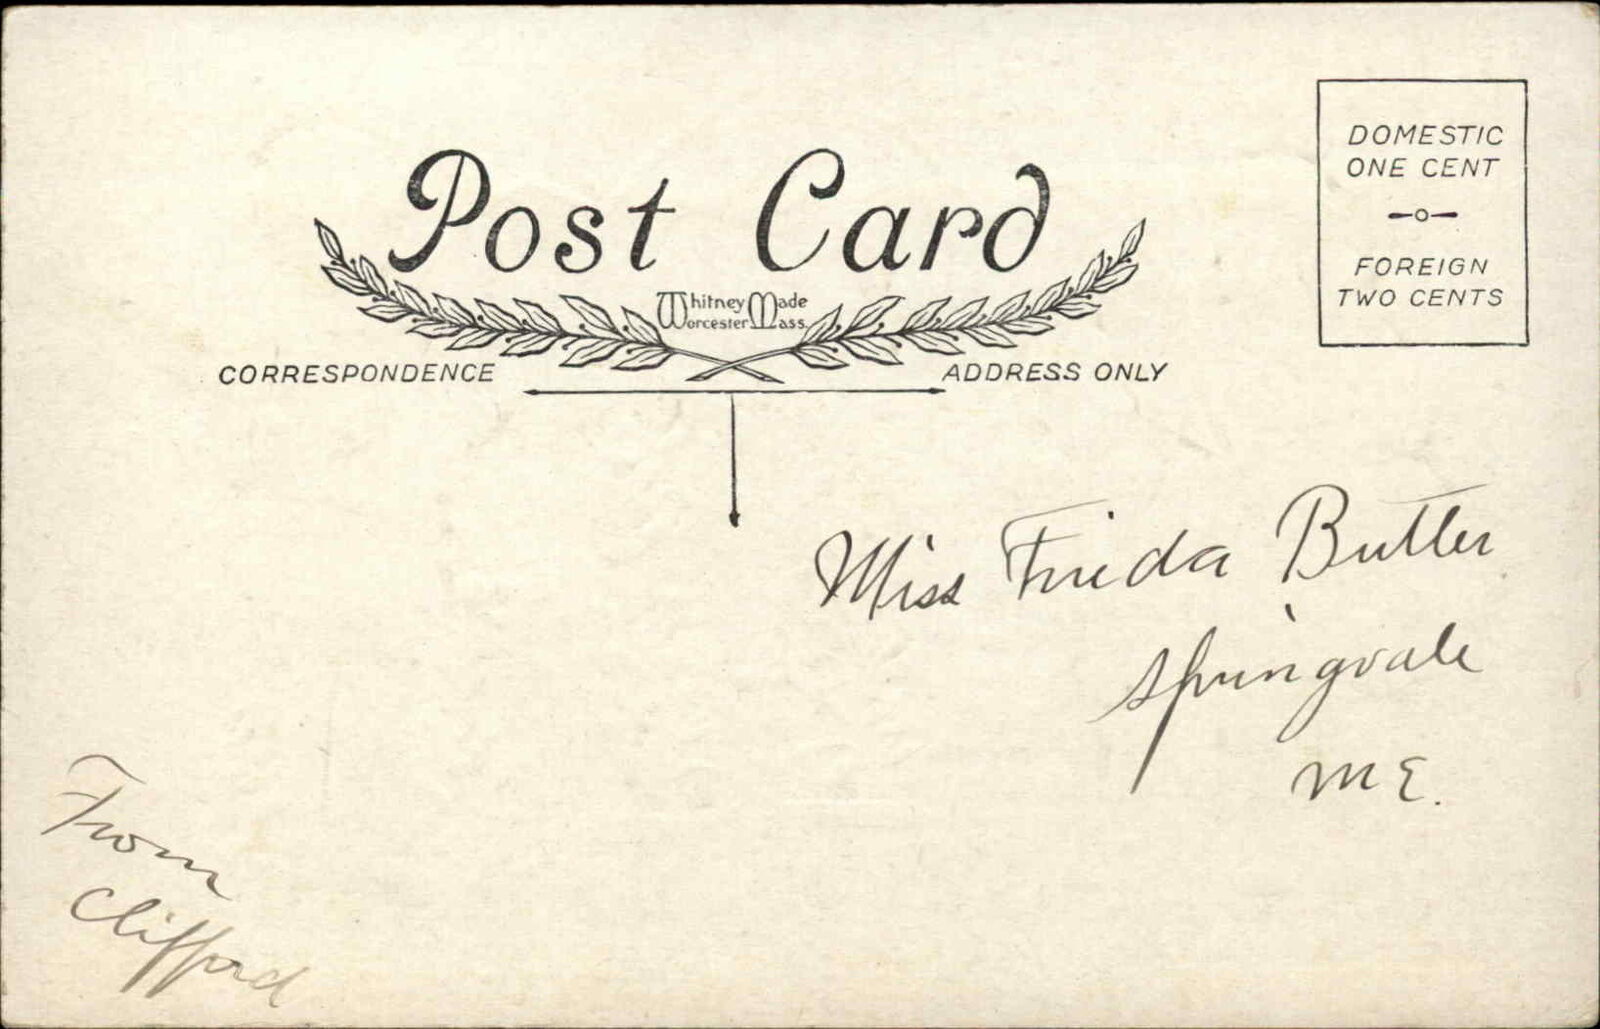 Post Card
Whitney Made
Worcester Mass.
CORRESPONDENCE
ADDRESS ONLY
DOMESTIC
ONE CENT
FOREIGN
TWO CENTS
Miss Frieda Butler
Springvale
ME.
From
Clifford